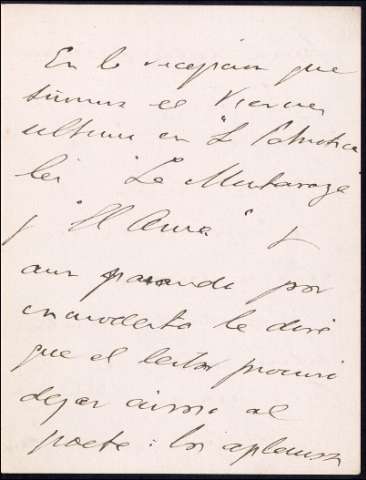 En la recepcion que
tuvimos el Viernes
ultimo en "La Patriotica
lei "La
y "El Ama" y
aun pasando por
inmodesto le diré
que el lector procuró
dejar airoso al
poeta: los aplausos